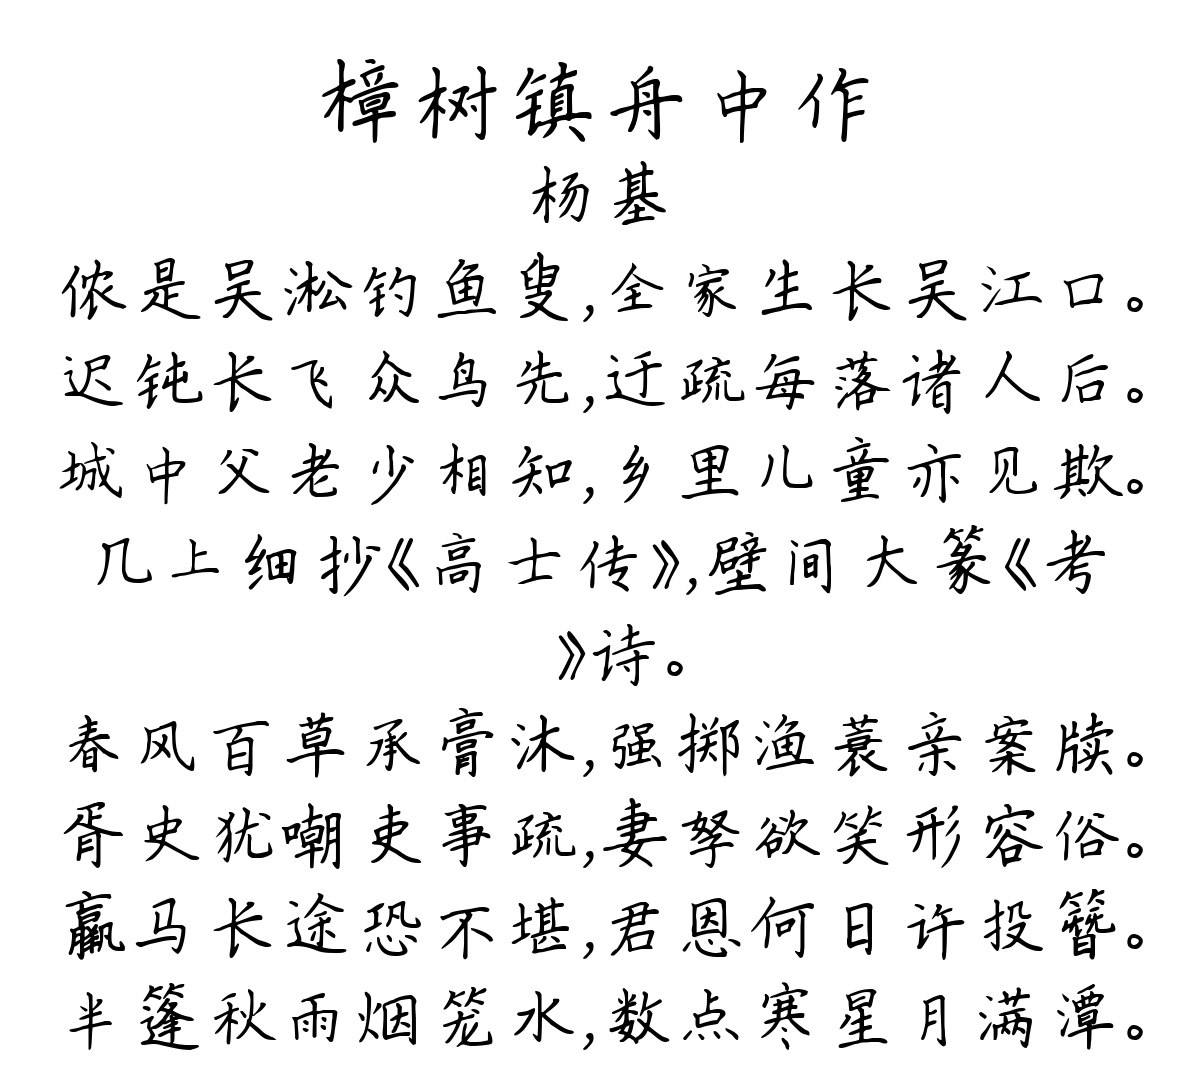 樟树镇舟中作
杨基
侬是吴淞钓鱼叟,全家生长吴江口。
迟钝长飞众鸟先,迂疏每落诸人后。
城中父老少相知,乡里儿童亦见欺。
几上细抄《高士传》,壁间大篆《考
》诗。
春风百草承膏沐,强掷渔蓑亲案牍。
胥史犹嘲吏事疏,妻孥欲笑形容俗。
羸马长途恐不堪,君恩何日许投簪。
半篷秋雨烟笼水,数点寒星月满潭。